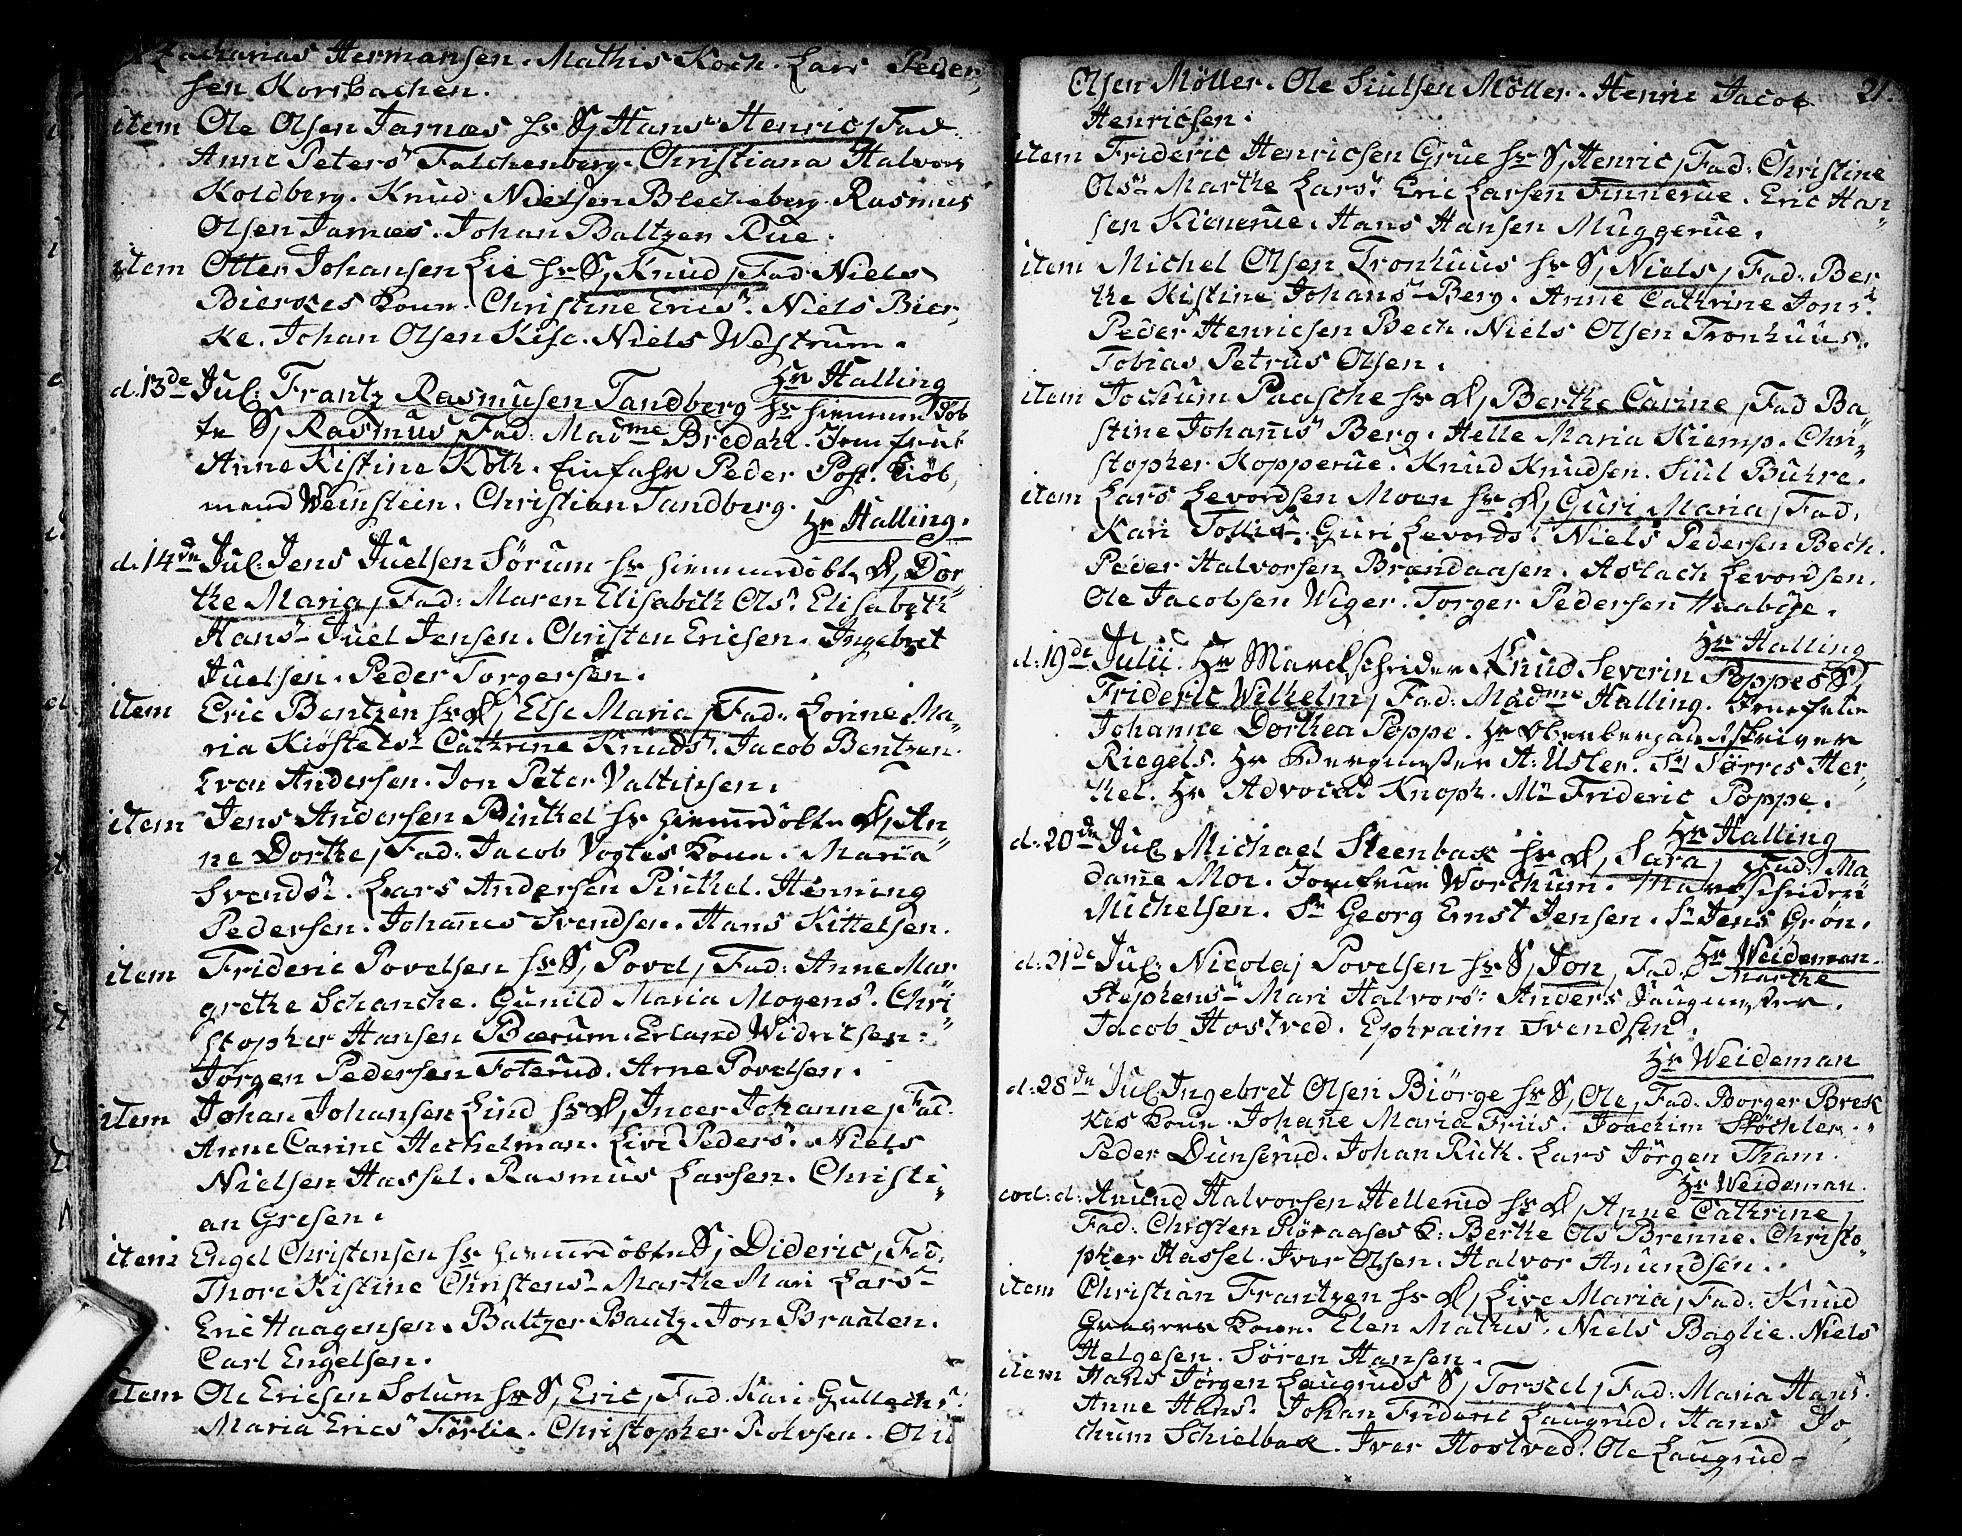 Zacharias Hermansen. Mathis Koch. Lars Peder-
sen Korsbachen.
item Ole Olsen Jarnæs hs S, Hans Henric, Fad
Anne Peters Falchenberg. Christiana Halvors
Koldberg. Knud Nielsen Blecheberg. Rasmus
Olsen Jarnæs. Johan Baltzer Rue.
item Otter Johansen Lie hs S, Knud, Fad Niels
Bierkes Koun. Christine Erics. Niels Bier-
ke. Johan Olsen Kise. Niels Westrum.
Hr Halling
d. 13de Jul: Frantz Rasmusen Tandberg hs hiemmedøb
te S, Rasmus, Fad: Madme Bredahl. Jomfrue
Anne Kistine Koth. Peder Post. Kiøb-
mand Weinstein. Christian Tandberg.
Hr Halling.
d. 14de Jul. Jens Juelsen Sørum hs hiemmedøbt D, Dor-
the Maria, Fad: Maren Elisabeth Ols. Elisabeth
Hans. Juel Jensen. Christen Ericsen. Ingebret
Juelsen. Peder Torgersen.
item Eric Bentzen hs D, Else Maria, Fad: Lorine Ma-
ria Kiøstels. Cathrine Knuds. Jacob Bentzen.
Even Andersen. Jon Peter Valtinsen.
item Jens Andersen Pinthel hs hiemmedøbte D, An-
ne Dorthe, Fad: Jacob Vogtes Koun. Maria
Svends. Lars Andersen Pinthel. Henning
Pedersen. Johannes Svendsen. Hans Kittelsen.
item Frideric Povelsen hs S, Povel, Fad: Anne Mar-
grethe Schanche. Gunild Maria Mogens. Chri-
stopher Hansen Bærum. Erland Widricsen.
Jørgen Pedersen Foterud. Arne Povelsen.
item Johan Johansen Lind hs D, Inger Johanne, Fad.
Anne Carine Hechelman. Live Peders. Niels
Nielsen Hassel. Rasmus Larsen. Christi-
an Gresen.
item Engel Christensen hs hiemmedøbte S, Dideric, Fad.
Thore Kistine Christens. Marthe Mari Lars
Eric Haagensen. Baltzer Bautz. Jon Braaten.
Carl Engelsen.
item Ole Ericsen Solum hs S, Eric, Fad. Kari Gullechs.
Maria Erics Førlie. Christopher Rolvsen.
Olsen Møller. Ole Siulsen Møller. Henric Jacob 21.
Henricsen.
item Frideric Henricsen Grue hs S, Henric, Fad: Christine
Ols. Marthe Lars. Eric Larsen Finnerue. Eric Han-
sen Kiønerue. Hans Hansen Muggerue.
item Michel Olsen Tronhuus hs S, Niels, Fad: Ber
the Kistine Johans Berg. Anne Cathrine Jons.
Peder Henricsen Bech. Niels Olsen Tronhuus.
Tobias Petrus Olsen.
item Jochum Paasche hs D, Berthe Carine, Fad Ba-
stine Johans Berg. Helle Maria Kiemp. Chri-
stopher Kopperue. Knud Knudsen. Siul Buhre.
item Lars Levordsen Moen hs D, Guri Maria, Fad.
Kari Tollis. Guri Levords. Niels Pedersen Bech.
Peder Halvorsen Brændaasen. Aslach Levordsen.
Ole Jacobsen Wiger. Torger Pedersen Haabøe.
Hr Halling
d: 19de Julii. Hr Marckscheider Knud Severin Poppes S,
Frideric Wilhelm, Fad: Madme Halling. Jomfrue
Johanne Dorthea Poppe. Hr Oberbergamtskriver
Riegels. Hr Bergmester A: Usler. Sr Sørres Her-
tel. Hr Advocad Knoph. Mr Frideric Poppe.
Hr Halling
d: 20de Jul Michael Steenbak hs D, Sara, Fad: Ma-
dame Moe. Jomfrue Worchum. Marckscheider
Michelsen. Sr Georg Ernst Jensen. Sr Jens Grøn.
Hr Weideman.
d: 21de Jul: Nicolaj Povelsen hs S, Jon, Fad: Marthe
Stephens. Mari Halvors: Anders Saugmester.
Jacob Hostved. Ephraim Svendsen.
Hr Weideman
d: 28de Jul Ingebret Olsen Biørge hs S, Ole, Fad: Borger Brek
kes Koun. Johanne Maria Friis. Joachim Støchler.
Peder Dunserud. Johan Ruth. Lars Jørgen Tham.
Hr Weideman.
eod: d: Anund Halvorsen Hellerud hs D, Anne Cathrine,
Fad: Christen Røraases K: Berthe Ols Brenne. Christo-
pher Hassel. Iver Olsen. Halvor Anundsen.
item Christian Frantzen hs D, Live Maria, Fad: Knud
Gravers Koun. Elen Mathis. Niels Baglie. Niels
Helgesen. Søren Hansen.
item Hans Jørgen Laugruds S, Torkel, Fad: Maria Hans.
Anne Hans. Johan Frideric Laugrud. Hans Jo-
chum Schielbak. Iver Hostved. Ole Laugrud